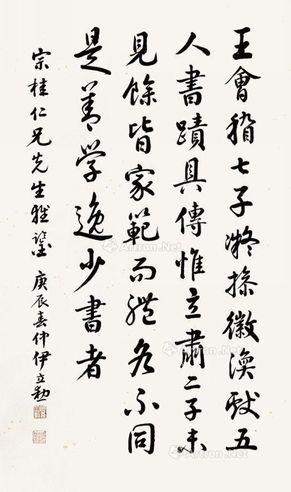 王會稽七子凝操徽渙獻五
人書蹟具傳惟立肅二子未
見餘皆家範而體各不同
是善學逸少書者
宗桂仁兄先生雅鑒 庚辰春仲伊立勛